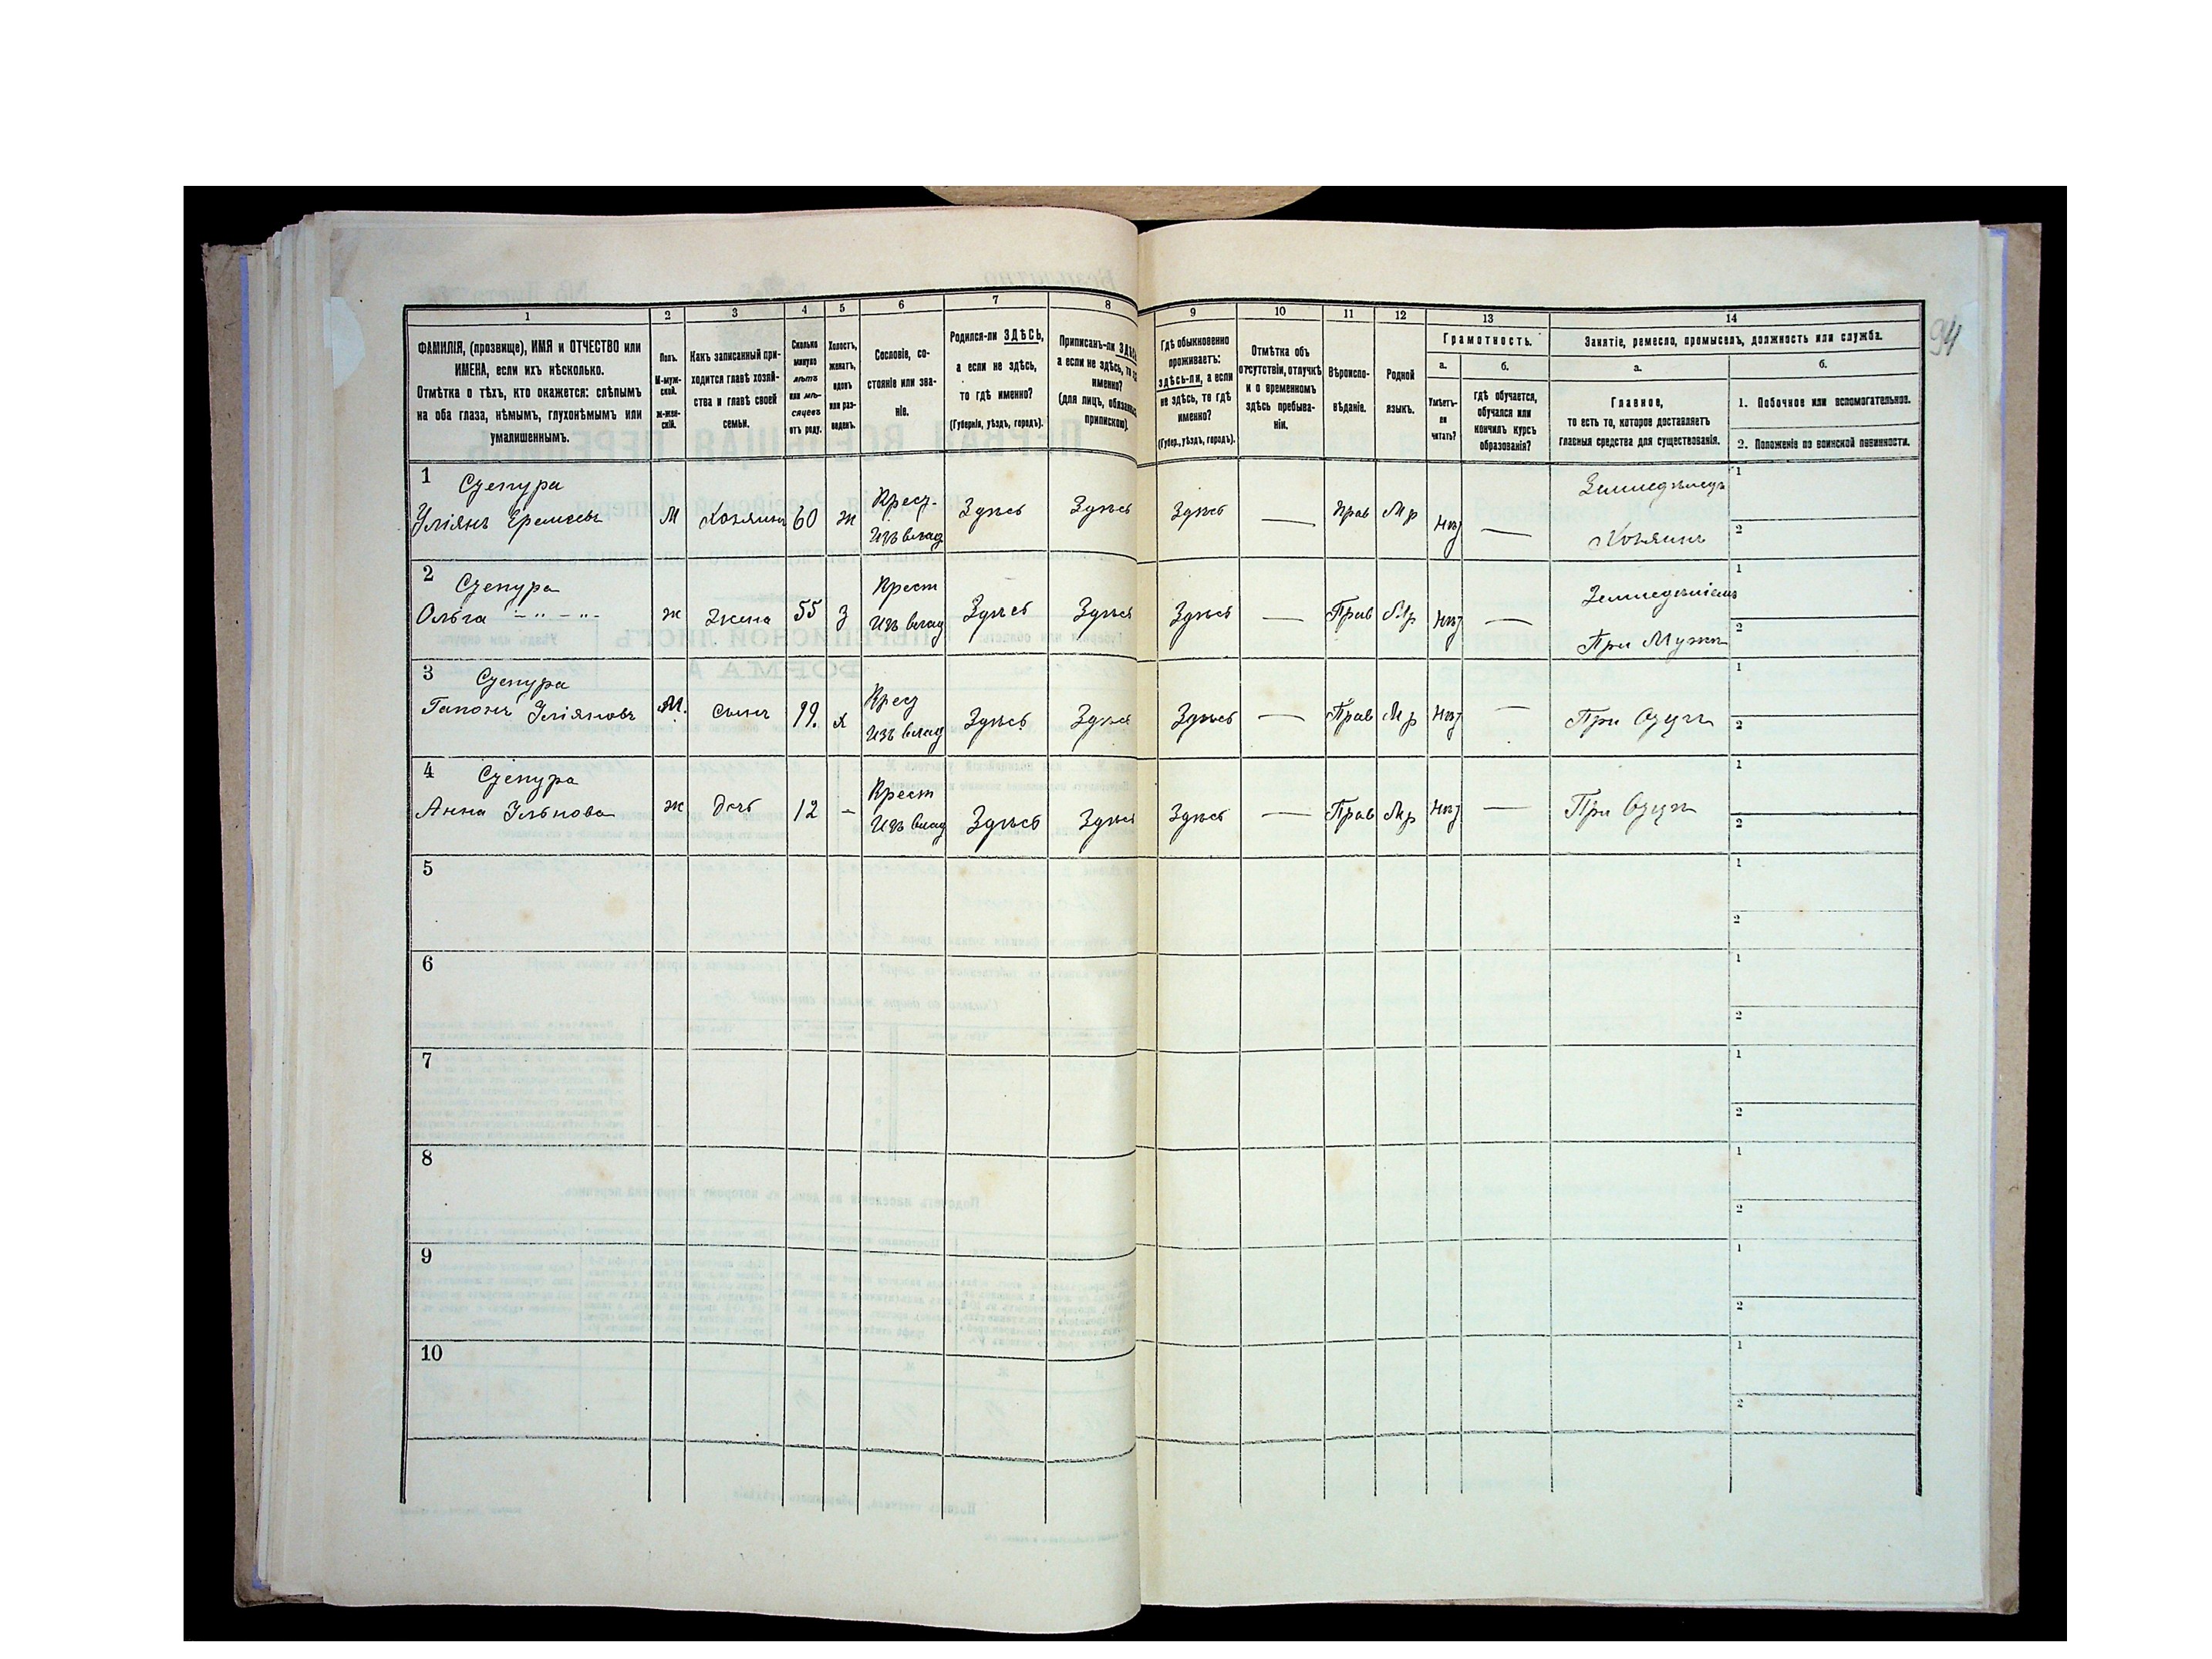 94
1
2
3
4
5
6
7
8
9
10
11
12
13
14
ФАМИЛІЯ, (прозвище), ИМЯ и ОТЧЕСТВО или
ИМЕНА, если ихъ нѣсколько.
Отмѣтка о тѣхъ, кто окажется: слѣпымъ
на оба глаза, нѣмымъ, глухонѣмымъ или
умалишеннымъ.
Полъ.
М-муж-
ской.
ж-жен-
скій.
Какъ записанный при-
ходится главѣ хозяй-
ства и главѣ своей
семьи.
Сколько
минуло
лѣтъ
или мѣ-
сяцевъ
отъ роду.
Холостъ,
женатъ,
вдовъ
или раз-
веденъ.
Сословіе, со-
стояніе или зва-
ніе.
Родился-ли ЗДѢСЬ,
а если не здѣсь,
то гдѣ именно?
(Губернія, уѣздъ, городъ).
Приписанъ-ли ЗДѢСЬ
а если не здѣсь, то
именно?
(для лицъ,
припискою).
Гдѣ обыкновенно
проживаетъ:
здѣсь-ли, а если
не здѣсь, то гдѣ
именно?
(Губер., уѣздъ, городъ).
Отмѣтка объ
отсутствіи, отлучкѣ
и о временномъ
здѣсь пребыва-
ніи.
Вѣроиспо-
вѣданіе.
Родной
языкъ.
Грамотность.
а.
Умѣетъ-
ли
читать?
б.
гдѣ обучается,
обучался или
кончилъ курсъ
образованія?
Занятіе, ремесло, промыселъ, должность или служба.
а.
Главное,
то есть то, которое доставляетъ
главныя средства для существованія.
б.
1. Побочное или вспомогательное.
2. Положеніе по воинской повинности.
1 Сцепура
Уліянъ М Хозяинъ 60 ж Крест. Изъ влад Здѣсь Здѣсь Здѣсь — Прав Мр Нѣт — Земледѣлецъ
Хозяинъ
1
2
2 Сцепура
Ольга – " – " Ж Жена 55 З Крест Изъ влад Здѣсь Здѣсь Здѣсь — Прав Мр Нѣт —
При Мужѣ
1
2
3 Сцепура
Гапонъ Уліяновъ М. Сынъ Х Крест Изъ влад Здѣсь Здѣсь Здѣсь — Прав Мр Нѣт — При Отцѣ
1
2
4 Сцепура
Анна Ж Дочь 12 – Крест Изъ влад Здѣсь Здѣсь Здѣсь — Прав Мр Нѣт — При Отцѣ
1
2
5
1
2
6
1
2
7
1
2
8
1
2
9
1
2
10
1
2